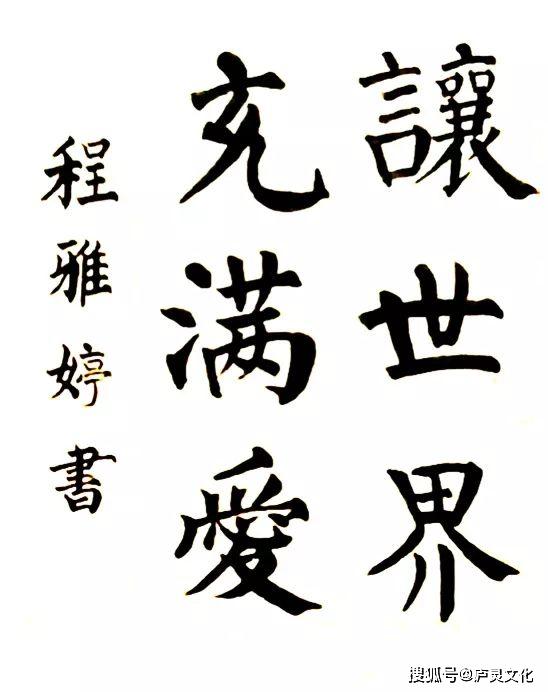 讓世界
充满愛
程雅婷書
搜狐号@庐灵文化